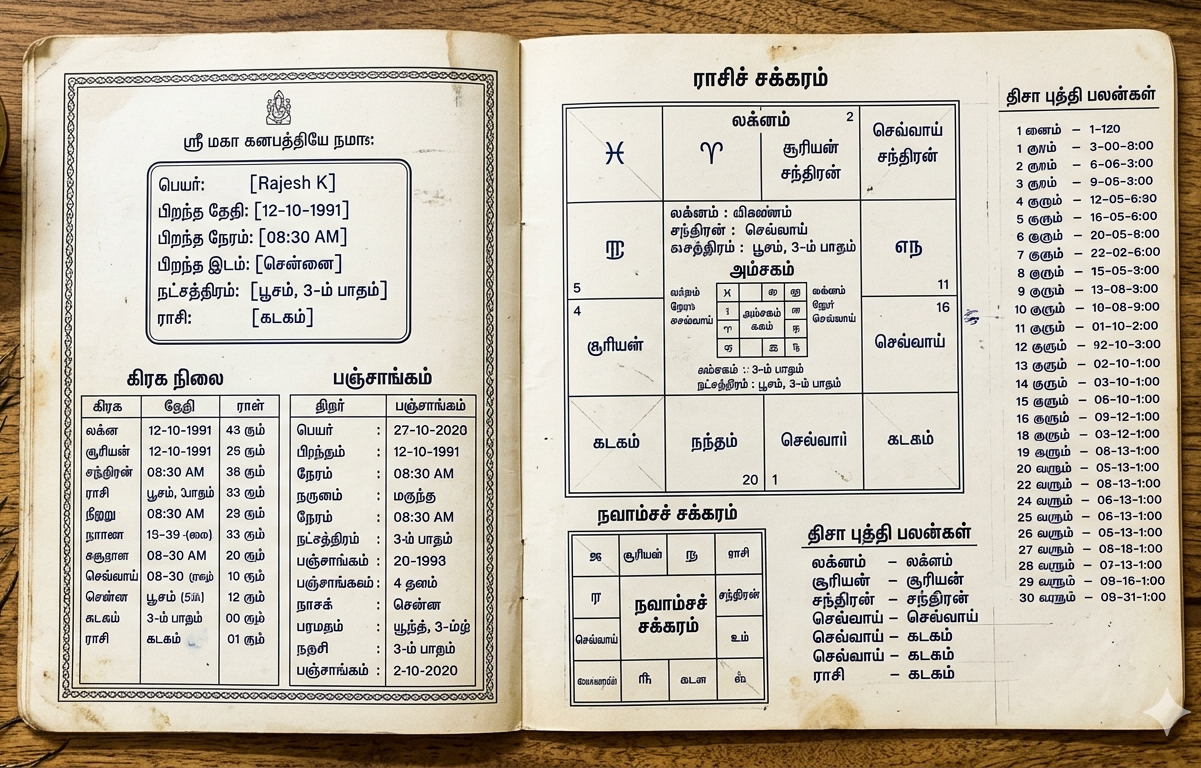 ஸ்ரீ மகா கனபத்தியே நமாஃ
பெயர்: [Rajesh K]
பிறந்த தேதி: [12-10-1991]
பிறந்த நேரம்: [08:30 AM]
பிறந்த இடம்: [சென்னை]
நட்சத்திரம்: [பூசம், 3-ம் பாதம்]
ராசி: [கடகம்]
கிரக நிலை
கிரக ராள்
லக்ன 12-10-1991 43
சூரியன் 12-10-1991 25
சந்திரன் 08:30 AM 38
ராசி பூசம், 33
08:30 AM 23
33
08-30 AM 20
செவ்வாய் 08-30 10
சென்ன பூசம் 12
கடகம் 3-ம் பாதம் 00
ராசி கடகம் 01
பஞ்சாங்கம்
திறர் பஞ்சாங்கம்
பெயர் : 27-10-2020
பிறந்தம் : 12-10-1991
நேரம் : 08:30 AM
நருனம் : மகுந்த
நேரம் : 08:30 AM
நட்சத்திரம் : 3-ம் பாதம்
பஞ்சாங்கம் : 20-1993
: 4
நாசக் : சென்ன
பரமதம் :
நதசி : 3-ம் பாதம்
பஞ்சாங்கம் : 2-10-2020
ராசிச் சக்கரம்
♓ ♈
லக்னம் 2
சூரியன்
சந்திரன்
செவ்வாய்
சந்திரன்
5
எந
11
4
சூரியன்
16
செவ்வாய்
லக்னம் :
சந்திரன் : செவ்வாய்
பூசம், 3-ம் பாதம்
அம்சகம்
அம்சகம்
: 3-ம் பாதம்
நட்சத்திரம் : பூசம், 3-ம் பாதம்
கடகம்
நந்தம்
20
செல்வார்
1
கடகம்
நவாம்சச் சக்கரம்
ஜ சூரியன் ராசி
ர சந்திரன்
நவாம்சச்
சக்கரம்
செவ்வாய் உம்
திசா புத்தி பலன்கள்
லக்னம் – லக்னம்
சூரியன் – சூரியன்
சந்திரன் – சந்திரன்
செவ்வாய் – செவ்வாய்
செவ்வாய் – கடகம்
செவ்வாய் – கடகம்
ராசி – கடகம்
திசா புத்தி பலன்கள்
1 – 1-120
1 – 3-00-8:00
2 – 6-06-3:00
3 – 9-05-3:00
4 குரும் – 12-05-6:30
5 குரும் – 16-05-6:00
6 குரும் – 20-05-8:00
7 குரும் – 22-02-6:00
8 குரும் – 15-05-3:00
9 குரும் – 13-08-9:00
10 குரும் – 10-08-9:00
11 குரும் – 01-10-2:00
12 குரும் – 92-10-3:00
13 குரும் – 02-10-1:00
14 குரும் – 03-10-1:00
15 குரும் – 06-10-1:00
16 குரும் – 09-12-1:00
18 குரும் – 03-12-1:00
19 குரும் – 08-13-1:00
20 வரும் – 05-13-1:00
22 வரும் – 08-13-1:00
24 வரும் – 06-13-1:00
25 வரும் – 06-13-1:00
26 வரும் – 05-13-1:00
27 வரும் – 08-18-1:00
28 வரும் – 07-13-1:00
29 வரும் – 09-16-1:00
30 வரும் – 09-31-1:00